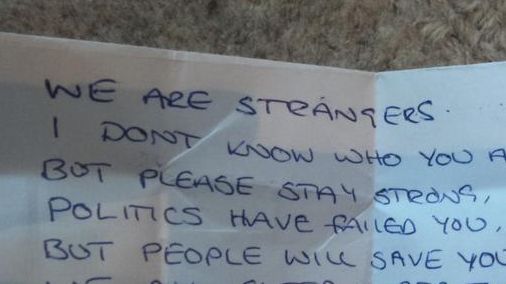 WE ARE STRANGERS.
I DONT KNOW WHO YOU A
BUT PLEASE STAY STRONG,
POLITICS HAVE FAILED YOU,
BUT PEOPLE WILL SAVE YOU
WE ALL